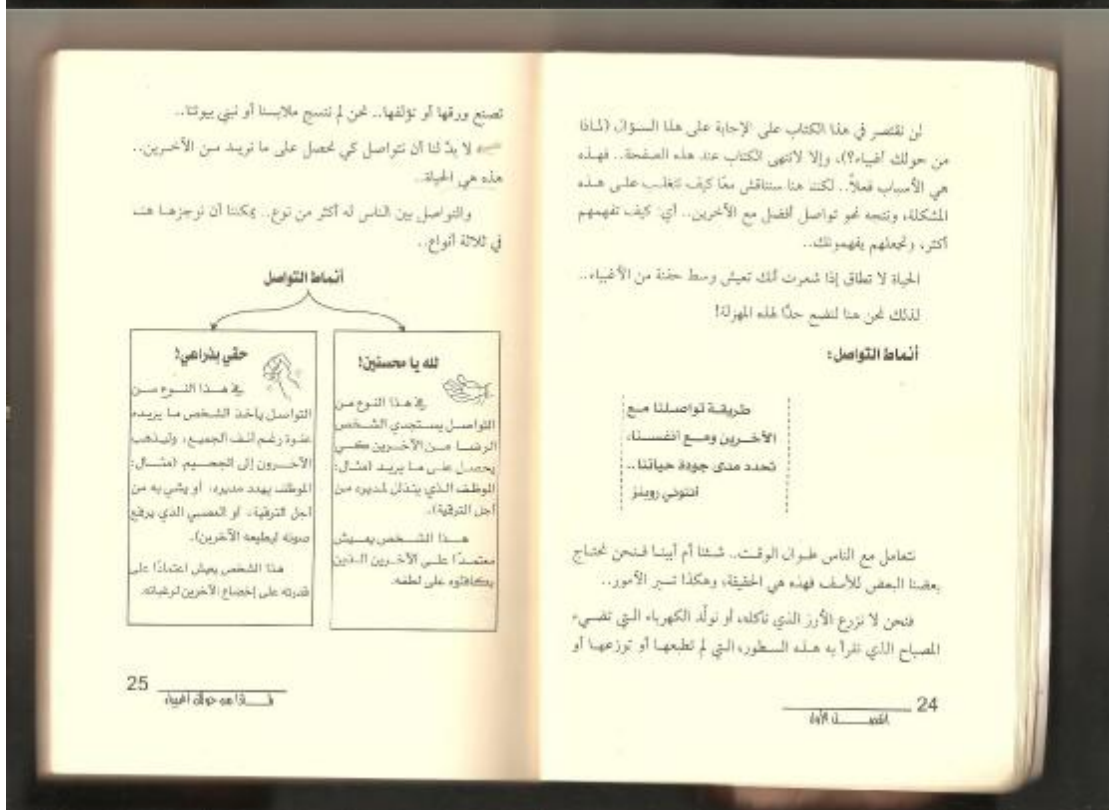 لن نقتصر في هذا الكتاب على الإجابة على هذا السؤال (لماذا
من حولك أغبياء؟)، وإلا لانتهى الكتاب عند هذه الصفحة.. فهذه
هي الأسباب فعلاً.. لكننا هنا سنناقش معًا كيف نتغلب على هذه
المشكلة، ونتجه نحو تواصل أفضل مع الآخرين.. أي: كيف تفهمهم
أكثر، وتجعلهم يفهمونك..
الحياة لا تطاق إذا شعرت أنك تعيش وسط حفنة من الأغبياء..
لذلك نحن هنا لنضع حدًّا لهذه المهزلة!
أنماط التواصل:
طريقة تواصلنا مع
الآخرين ومع أنفسنا،
تحدد مدى جودة حياتنا..
أنتوني روبنز
نتعامل مع الناس طوال الوقت.. شئنا أم أبينا فنحن نحتاج
بعضنا البعض للأسف فهذه هي الحقيقة، وهكذا تسير الأمور..
فنحن لا نزرع الأرز الذي نأكله، أو نولّد الكهرباء التي تضيء
المصباح الذي نقرأ به هذه السطور، التي لم نطبعها أو نوزعها أو
24
الفصل الأول
نصنع ورقها أو نؤلفها.. نحن لم ننسج ملابسنا أو نبني بيوتنا..
لا بدّ لنا أن نتواصل كي نحصل على ما نريد من الآخرين..
هذه هي الحياة..
والتواصل بين الناس له أكثر من نوع.. يمكننا أن نوجزها هنا
في ثلاثة أنواع..
أنماط التواصل
لله يا محسنين!
في هذا النوع من
التواصل يستجدي الشخص
الرضا من الآخرين كي
يحصل على ما يريد (مثال:
الموظف الذي يتذلل لمديره من
أجل الترقية).
هذا الشخص يعيش
معتمدًا على الآخرين الذين
يكافئوه على لطفه.
حقي بذراعي!
في هذا النوع من
التواصل يأخذ الشخص ما يريده
عنوة رغم أنف الجميع، وليذهب
الآخرون إلى الجحيم (مثال:
الموظف يهدد مديره، أو يشي به من
أجل الترقية، أو العصبي الذي يرفع
صوته ليطيعه الآخرين).
هذا الشخص يعيش اعتمادًا على
قدرته على إخضاع الآخرين لرغباته.
25
لماذا من حولك أغبياء